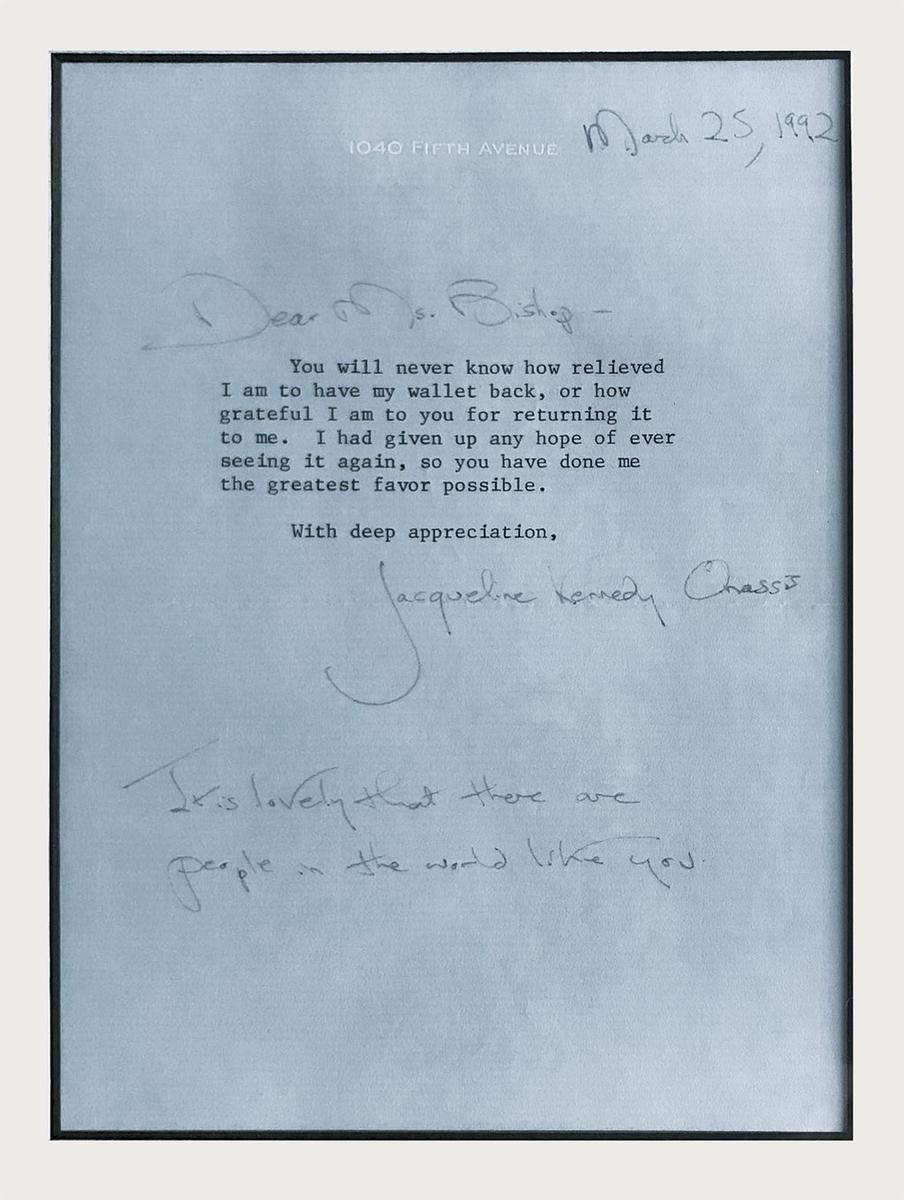 1040 FIFTH AVENUE March 25, 1992
Dear Ms. Bishop —
You will never know how relieved
I am to have my wallet back, or how
grateful I am to you for returning it
to me.  I had given up any hope of ever
seeing it again, so you have done me
the greatest favor possible.
With deep appreciation,
Jacqueline Kennedy Onassis
It is lovely that there are
people in the world like you.